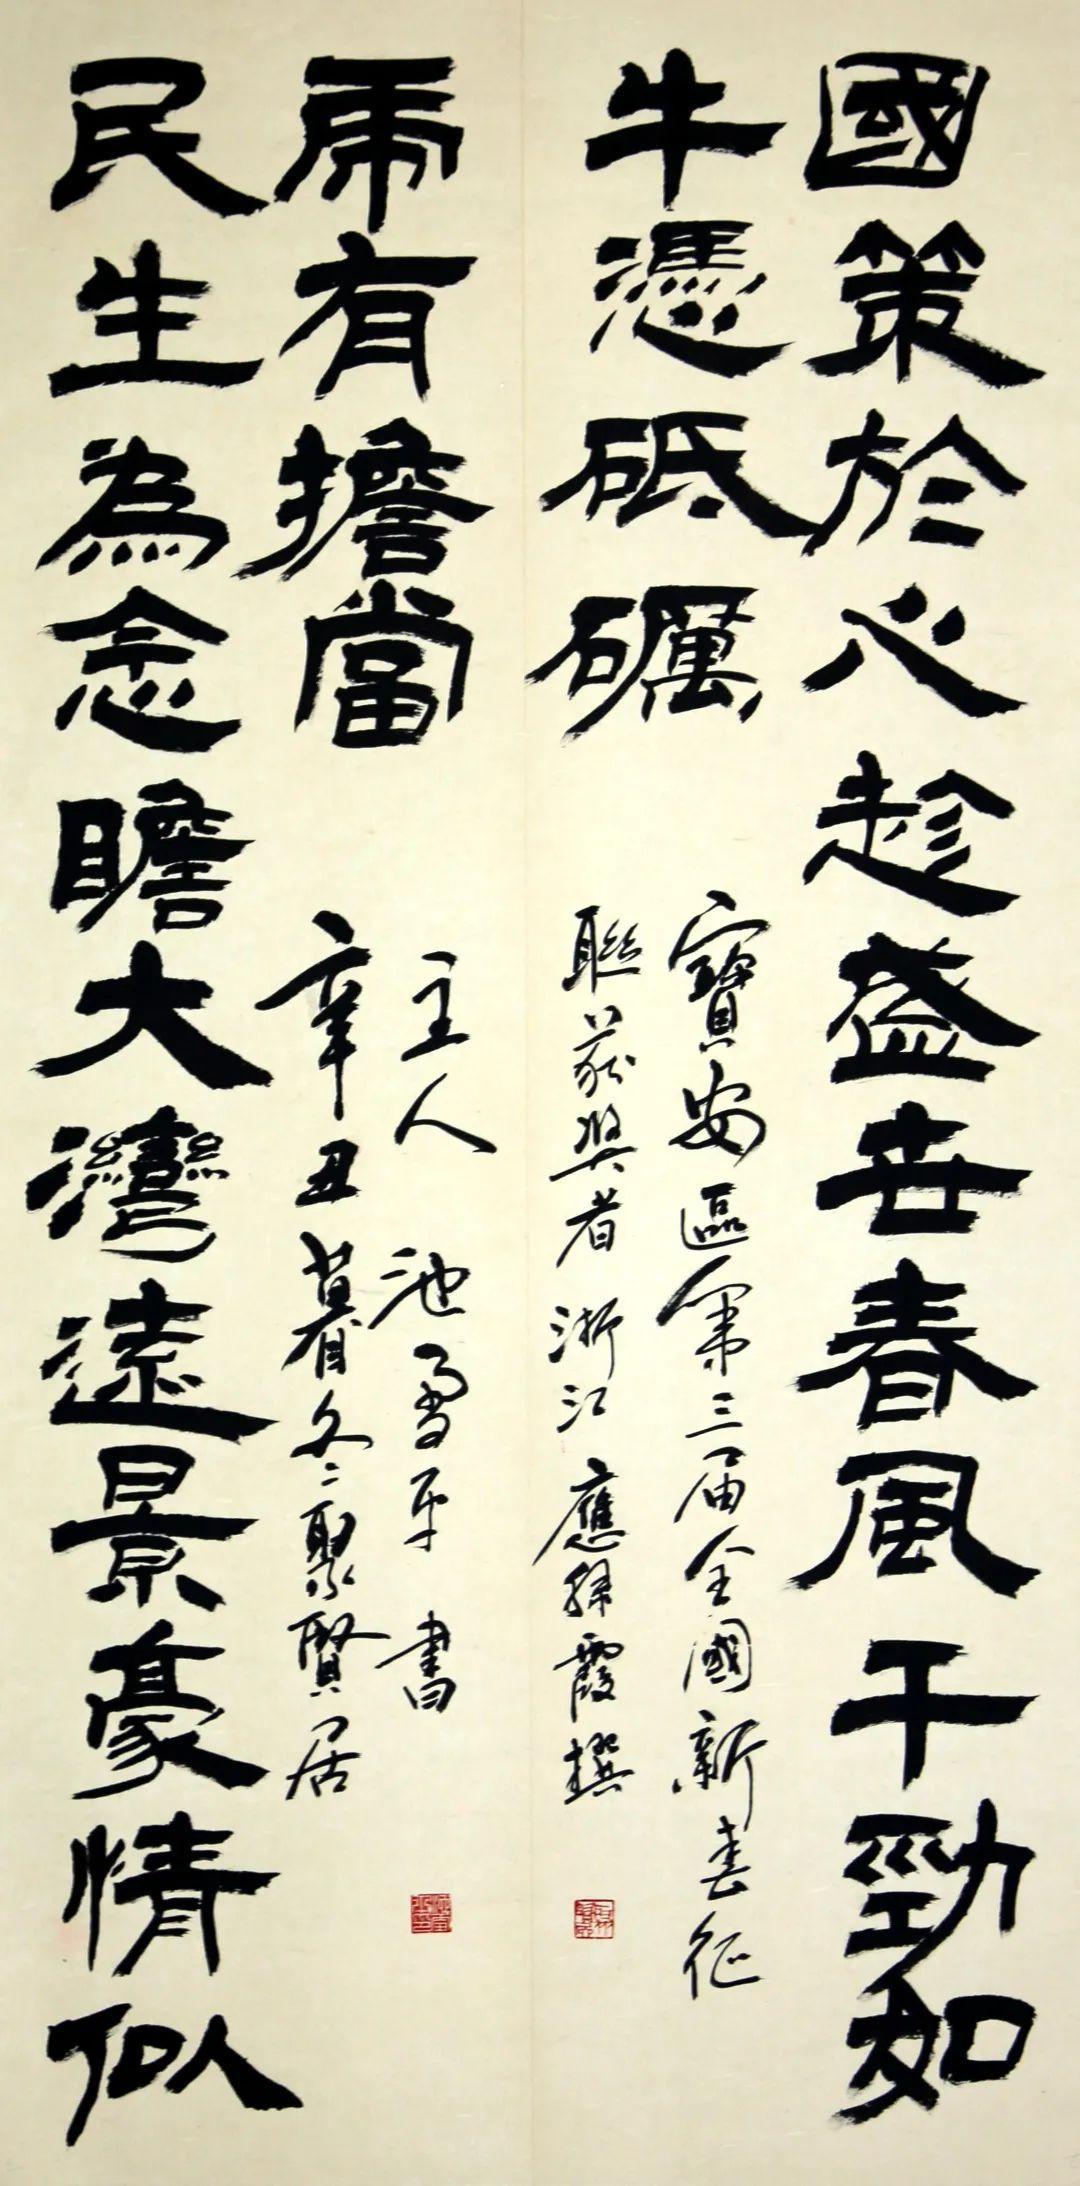 國策於心趁盛世春風干勁如
牛憑砥礪
寶安區第三届全國新春征
聯获奖者 浙江 應霞撰
民生為念瞻大灣遠景豪情似
虎有擔當
辛丑暮冬聚賢居
主人 池雪平書